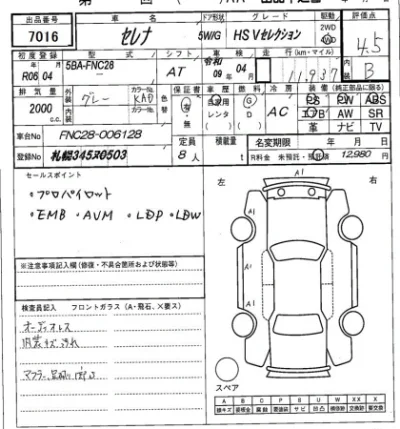 出品番号 車名 ドア形状 グレード 駆動 評価点
7016 セレナ 5W/G HS Vセレクション 2WD 4WD 4.5
初度登録 型式 シフト 車検 走行(km・マイル) 内装
R06 04 5BA-FNC28 AT 令和 09 04 111,937 B
排気量 外装 色 カラーNo. 色替 保証書 車歴 燃料 冷房 装備(純正部品に限る)
2000 グレー KAD 有・無 自家用 レンタ G D AC PS PW ABS
エアB AW SR
革 ナビ TV
車台No FNC28-006128
定員 積載量 名変期限 年 月 日
登録No. 札幌345ス0503 8人 t R料金 未預託・預託済 12,980円
セールスポイント
・プロパイロット
・EMB・AVM・LDP・LDW
左 右
A1
A1
A1
A1
A1
※注意事項記入欄(修復・不具合箇所および状態等)
検査員記入 フロントガラス(A・飛石、×要ス)
オーディオレス
内装キズ汚れ
スペア
A B C P S U W X XX